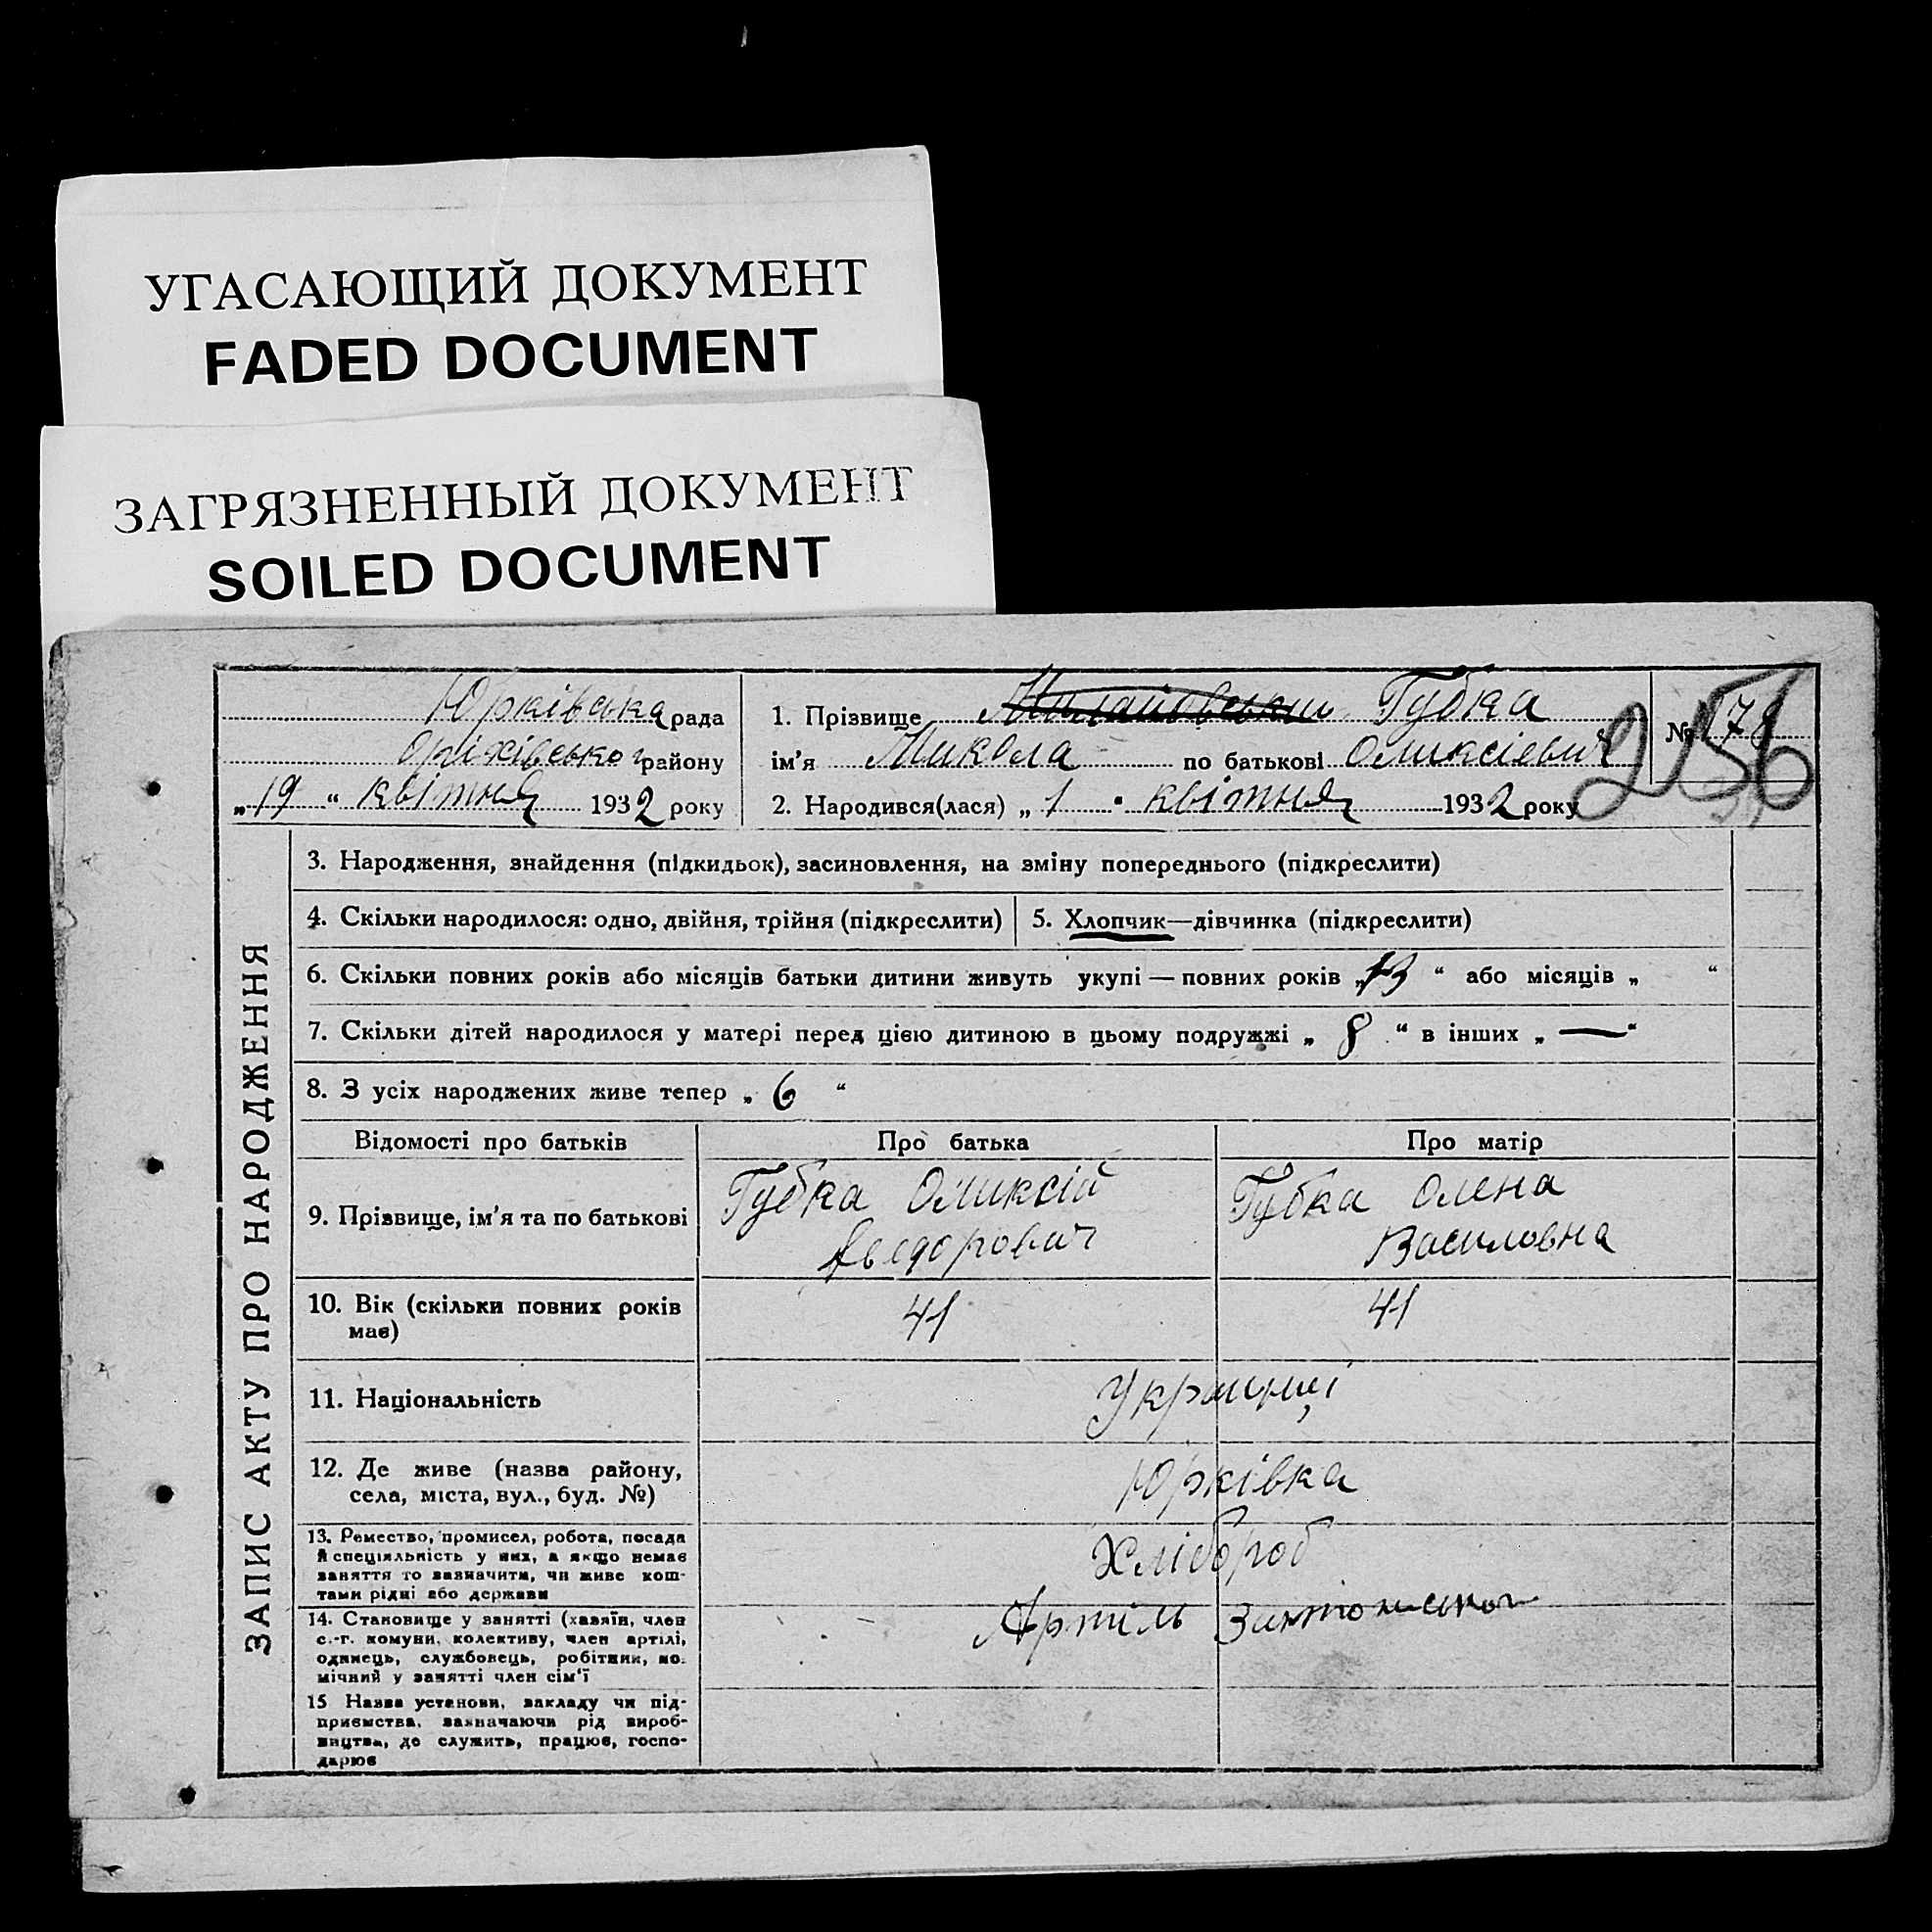 УГАСАЮЩИЙ ДОКУМЕНТ
FADED DOCUMENT
ЗАГРЯЗНЕННЫЙ ДОКУМЕНТ
SOILED DOCUMENT
Юрківська рада
Оріхівськог району
„19“ квітня 1932 року
1. Прізвище Губка
ім'я Микола по батькові Оликсієвич
2. Народився(лася) „1" квітня 1932 року
№ 178
256
ЗАПИС АКТУ ПРО НАРОДЖЕННЯ
3. Народження, знайдення (підкидьок), засиновлення, на зміну попереднього (підкреслити)
4. Скільки народилося: одно, двійня, трійня (підкреслити)
5. Хлопчик—дівчинка (підкреслити)
6. Скільки повних років або місяців батьки дитини живуть укупі — повних років „13“ або місяців „ “
7. Скільки дітей народилося у матері перед цією дитиною в цьому подружжі „8“ в інших „—“
8. З усіх народжених живе тепер „6“
Відомості про батьків
Про батька
Про матір
9. Прізвище, ім'я та по батькові
Губка Оликсій
Федорович
Губка Олена
Василовна
10. Вік (скільки повних років
має)
41
41
11. Національність
Українці
12. Де живе (назва району,
села, міста, вул., буд. №)
Юрківка
13. Ремество, промисел, робота, посада
й спеціяльність у них, а якщо немає
заняття то зазначити, чи живе кош-
тами рідні або держави
Хлібороб
14. Становище у занятті (хазяїн, член
с.-г. комуни, колективу, член артілі,
одинець, службовець, робітник, по-
мічний у занятті член сім'ї
Артіль
15 Назва установи, закладу чи під-
приємства, зазначаючи рід вироб-
ництва, де служить, працює, госпо-
дарює